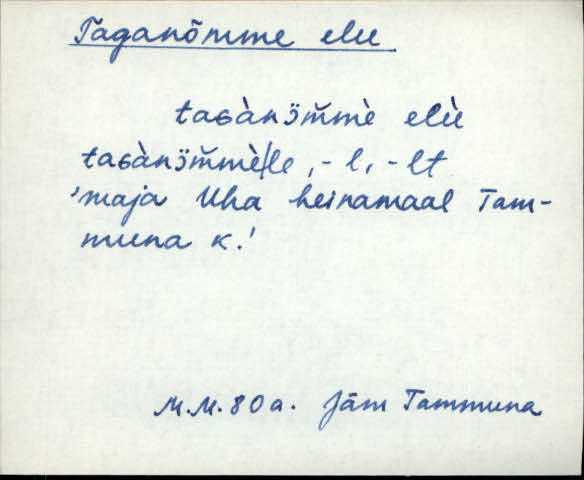 Taganõmme elu
taɢànɜ̈m̆mè elù
taɢànɜ̈m̆mè/le, -l, -lt
'maja Uha heinamaal Tam-
muna k.'
M.M. 80 a. Jäm Tammuna